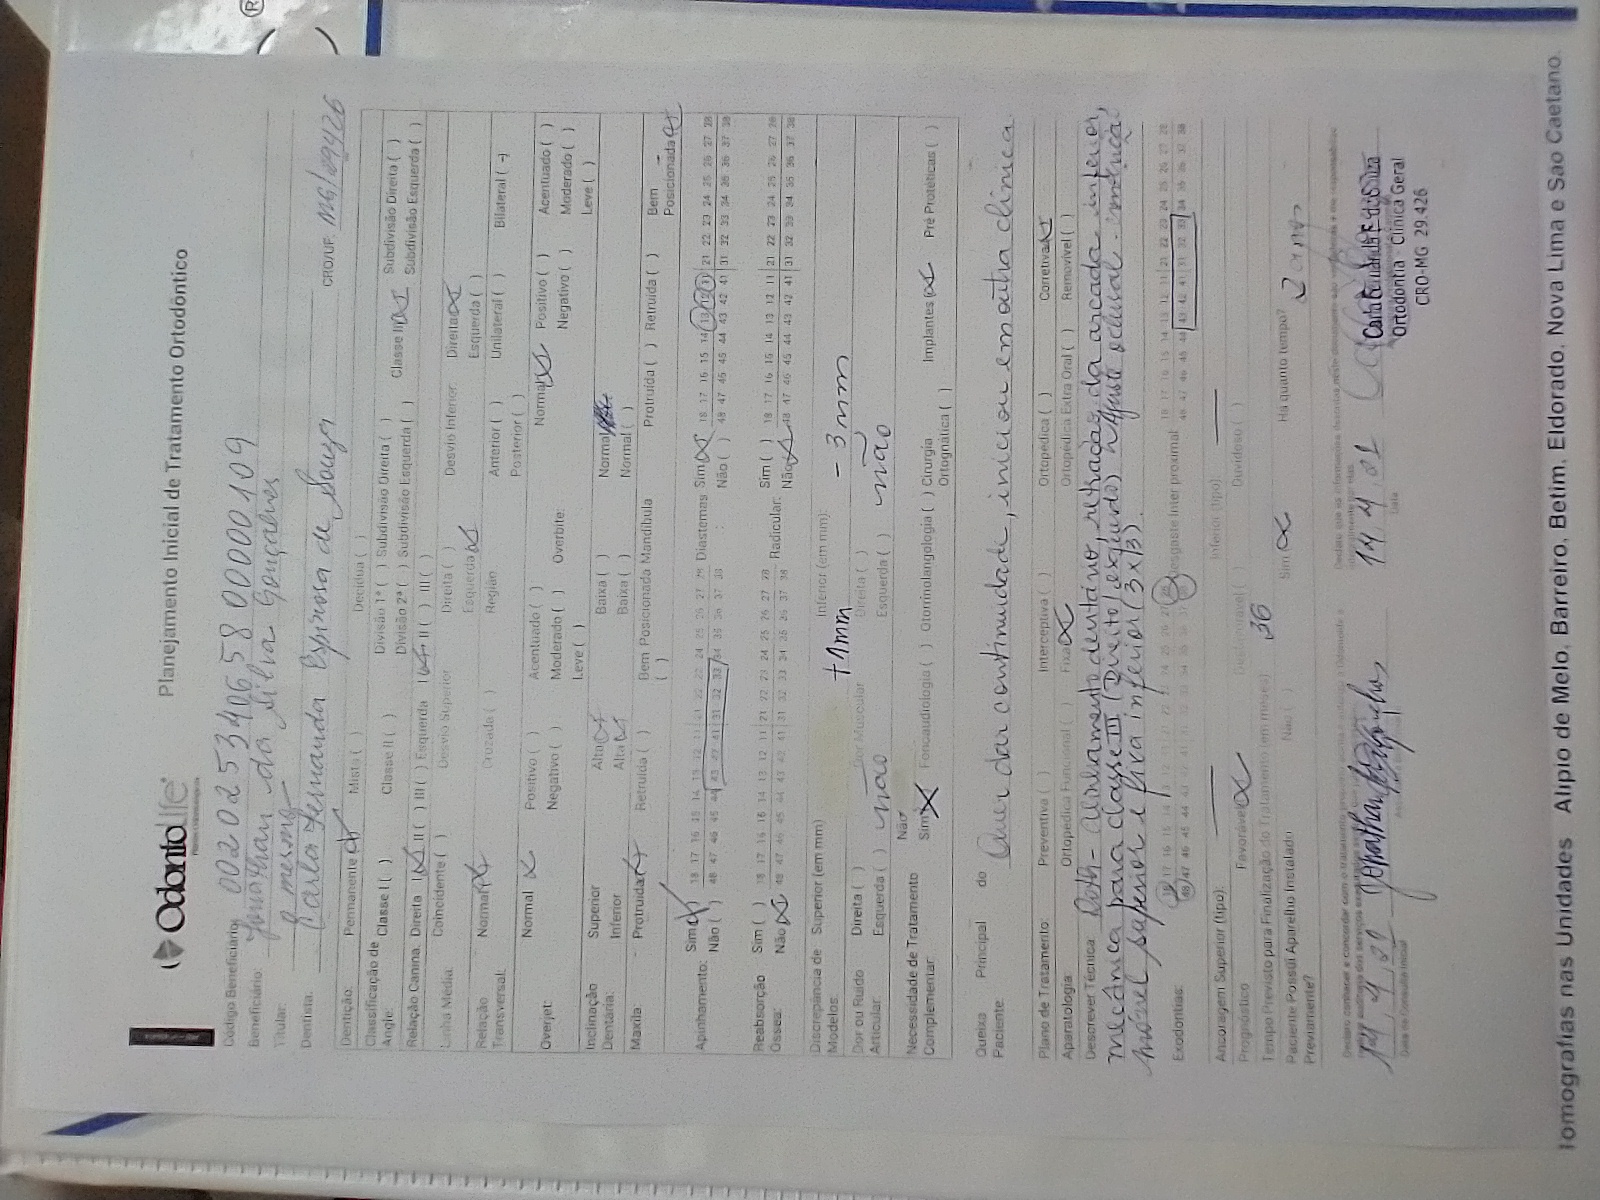 OdontoLife
Planejamento Inicial de Tratamento Ortodôntico
Código Beneficiário: 0020253406580000109
Beneficiário: Jonathan da Silva Gonçalves
Titular: o mesmo
Dentista: Carla Fernanda Espinosa de Souza CRO/UF: MG/29426
Dentição: Permanente (X) Mista ( ) Decídua ( )
Classificação de Angle: Classe I ( ) Classe II ( ) Divisão 1ª ( ) Subdivisão Direita ( ) Classe III (X) Subdivisão Direita ( )
Divisão 2ª ( ) Subdivisão Esquerda ( ) Subdivisão Esquerda ( )
Relação Canina: Direita I (X) II ( ) III ( ) Esquerda I (X) II ( ) III ( )
Linha Média: Coincidente ( ) Desvio Superior Direita ( ) Desvio Inferior Direita (X)
Esquerda (X) Esquerda ( )
Relação Transversal: Normal (X) Cruzada ( ) Região Anterior ( ) Unilateral ( ) Bilateral ( )
Posterior ( )
Overjet: Normal (X) Positivo ( ) Acentuado ( ) Overbite: Normal (X) Positivo ( ) Acentuado ( )
Negativo ( ) Moderado ( ) Negativo ( ) Moderado ( )
Leve ( ) Leve ( )
Inclinação Dentária: Superior Alta (X) Baixa ( ) Normal
Inferior Alta (X) Baixa ( ) Normal ( )
Maxila: Protruída (X) Retruída ( ) Bem Posicionada ( ) Mandíbula Protruída ( ) Retruída ( ) Bem Posicionada (X)
Apinhamento: Sim (X) 18 17 16 15 14 13 12 11 21 22 23 24 25 26 27 28 Diastemas: Sim (X) 18 17 16 15 14 13 12 11 21 22 23 24 25 26 27 28
Não ( ) 48 47 46 45 44 43 42 41 31 32 33 34 35 36 37 38 Não ( ) 48 47 46 45 44 43 42 41 31 32 33 34 35 36 37 38
Reabsorção Ósseas: Sim ( ) 18 17 16 15 14 13 12 11 21 22 23 24 25 26 27 28 Radicular: Sim ( ) 18 17 16 15 14 13 12 11 21 22 23 24 25 26 27 28
Não (X) 48 47 46 45 44 43 42 41 31 32 33 34 35 36 37 38 Não (X) 48 47 46 45 44 43 42 41 31 32 33 34 35 36 37 38
Discrepância de Modelos: Superior (em mm) +1mm Inferior (em mm): -3mm
Dor ou Ruído Articular: Direita ( ) Dor Muscular Direita ( )
Esquerda ( ) não Esquerda ( ) não
Necessidade de Tratamento Complementar: Não
Sim (X) Fonoaudiologia ( ) Otorrinolaringologia ( ) Cirurgia Ortognática ( ) Implantes (X) Pré Protéticas ( )
Queixa Principal do Paciente: Quer dar continuidade, iniciou em outra clínica.
Plano de Tratamento: Preventiva ( ) Interceptiva ( ) Ortopédica ( ) Corretiva (X)
Aparatologia: Ortopédica Funcional ( ) Fixa (X) Ortopédica Extra Oral ( ) Removível ( )
Descrever Técnica: Roth - Alinhamento dentário, retração da arcada inferior,
mecânica para classe III (Direito/esquerdo) Ajuste oclusal. contenção
móvel superior e fixa inferior (3x3).
Exodontias: 18 17 16 15 14 13 12 11 21 22 23 24 25 26 27 28 Desgaste Inter proximal 18 17 16 15 14 13 12 11 21 22 23 24 25 26 27 28
48 47 46 45 44 43 42 41 31 32 33 34 35 36 37 38 48 47 46 45 44 43 42 41 31 32 33 34 35 36 37 38
Ancoragem Superior (tipo): Inferior (tipo):
Prognóstico Favorável (X) Desfavorável ( ) Duvidoso ( )
Tempo Previsto para Finalização do Tratamento (em meses) 36
Paciente Possui Aparelho Instalado Previamente? Não ( ) Sim (X) Há quanto tempo? 2 anos
14, 4, 21 Data
Ortodontia Clínica Geral
CRO-MG 29.426
Tomografias nas Unidades Alípio de Melo, Barreiro, Betim, Eldorado, Nova Lima e São Caetano.